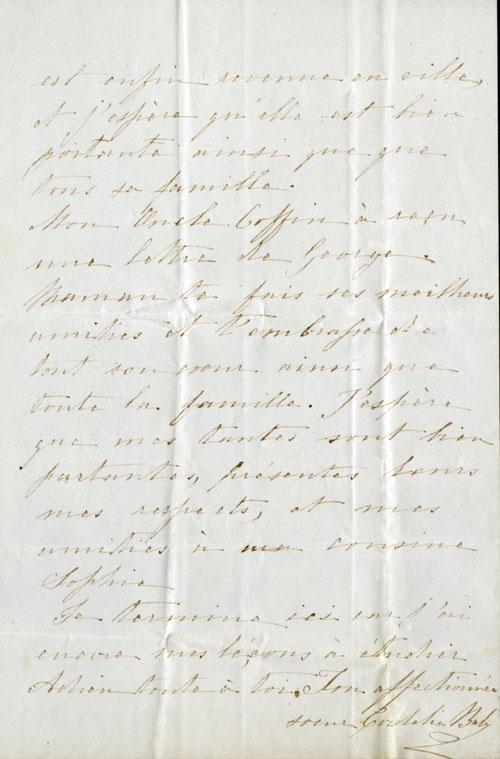 est enfin revenue en ville,
et j'espère qu'elle est bien
portante ainsi que que
tous sa famille.
Mon Uncle Coffin à reçu
une lettre de George.
Maman te fais ses meilleurs
amitiés et t'embrasse de
tout son coeur ainsi que
toute la famille. J'espère
que mes tantes sont bien
portantes, présentes leurs
mes respects, et mes
amitiés à ma cousine
Sophie
Je termine ici car j'ai
encore mes leçons à étudier
Adieu toute à toi. Ton affectionnée
soeur Cordelia